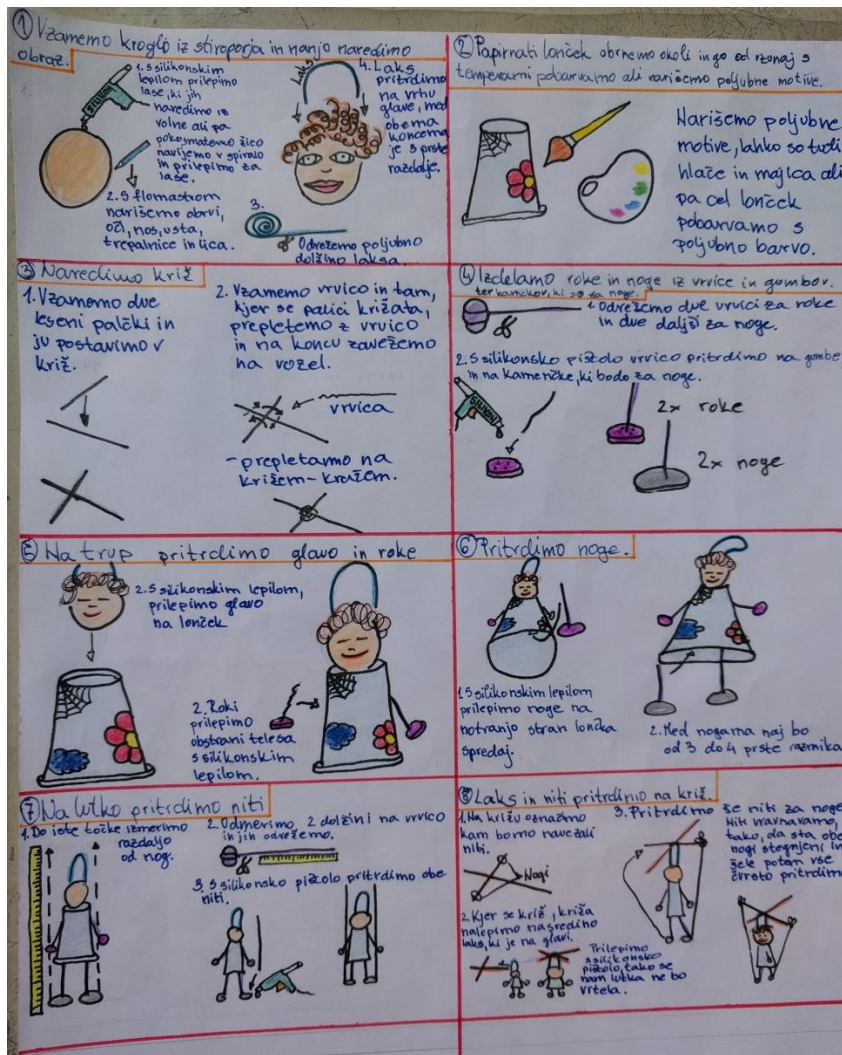 ① Vzamemo kroglo iz stiroporja in nanjo naredimo
obraz.
1. S silikonskim
lepilom prilepimo
lase, ki jih
naredimo iz
volne ali pa
pokosmateno žico
navijemo v spiralo
in prilepimo za
lase.
SILIKON
2. S flomastrom
narišemo obrvi,
oči, nos, usta,
trepalnice in lica.
Laks
4. Laks
pritrdimo
na vrhu
glave, med
obema
koncema
je 3 prste
razdalje.
3.
Odrežemo poljubno
dolžino laksa.
② Papirnati lonček obrnemo okoli in go od zonaj s
temperami pobarvamo ali narišemo poljubne motive.
Narišemo poljubne
motive, lahko so tudi
hlače in majica ali
pa cel lonček
pobarvamo s
poljubno barvo.
③ Naredimo križ
1. Vzamemo dve
leseni palčki in
ju postavimo v
križ.
2. Vzamemo vrvico in tam,
kjer se palici križata,
prepletemo z vrvico
in na koncu zavežemo
na vozel.
vrvica
- prepletamo na
križem-kražem.
④ Izdelamo roke in noge iz vrvice in gumbov.
ter kamnčkov, ki so za noge.
1. Odrežemo dve vrvici za roke
in dve daljši za noge.
2. S silikonsko pištolo vrvico pritrdimo na gumbe,
in na kamenčke, ki bodo za noge.
SILIKON
2x roke
2x noge
⑤ Na trup pritrdimo glavo in roke
2. S silikonskim lepilom,
prilepimo glavo
na lonček
2. Roki
prilepimo
ob strani telesa
s silikonskim
lepilom.
⑥ Pritrdimo noge.
1. S silikonskim lepilom
prilepimo noge na
notranjo stran lončka
spredaj.
2. Med nogama naj bo
od 3 do 4 prste razmika
⑦ Na lutko pritrdimo niti
1. Do iste točke izmerimo
razdaljo
od nog.
2. Odmerimo 2 dolžini na vrvico
in jih odrežemo.
3. S silikonsko pištolo pritrdimo obe
niti.
⑧ Laks in niti pritrdimo na križ.
1. Na križu označimo
kam bomo navezali
niti.
Nogi
2. Kjer se križ, križa
nalepimo na sredino
laks, ki je na glavi.
Prilepimo
s silikonsko
pištolo, tako se
nam lutka ne bo
vrtela.
3. Pritrdimo še niti za noge
Niti uravnavamo,
tako, da sta obe
nogi stegnjeni in
šele potem vse
čvrsto pritrdimo